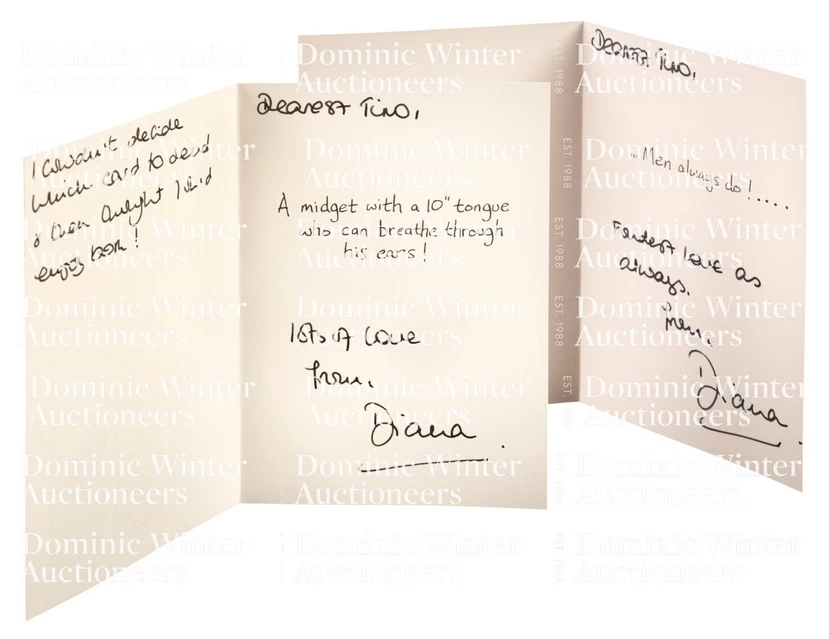 I couldn't decide
which card to send
& then thought I'd
enjoy both!
Dearest Tino,
A midget with a 10" tongue
who can breathe through
his ears!
lots of love
from,
Diana
Dearest Tino,
"Men always do!.....
Fondest love as
always.
from,
Diana
Dominic Winter
Auctioneers
EST. 1988